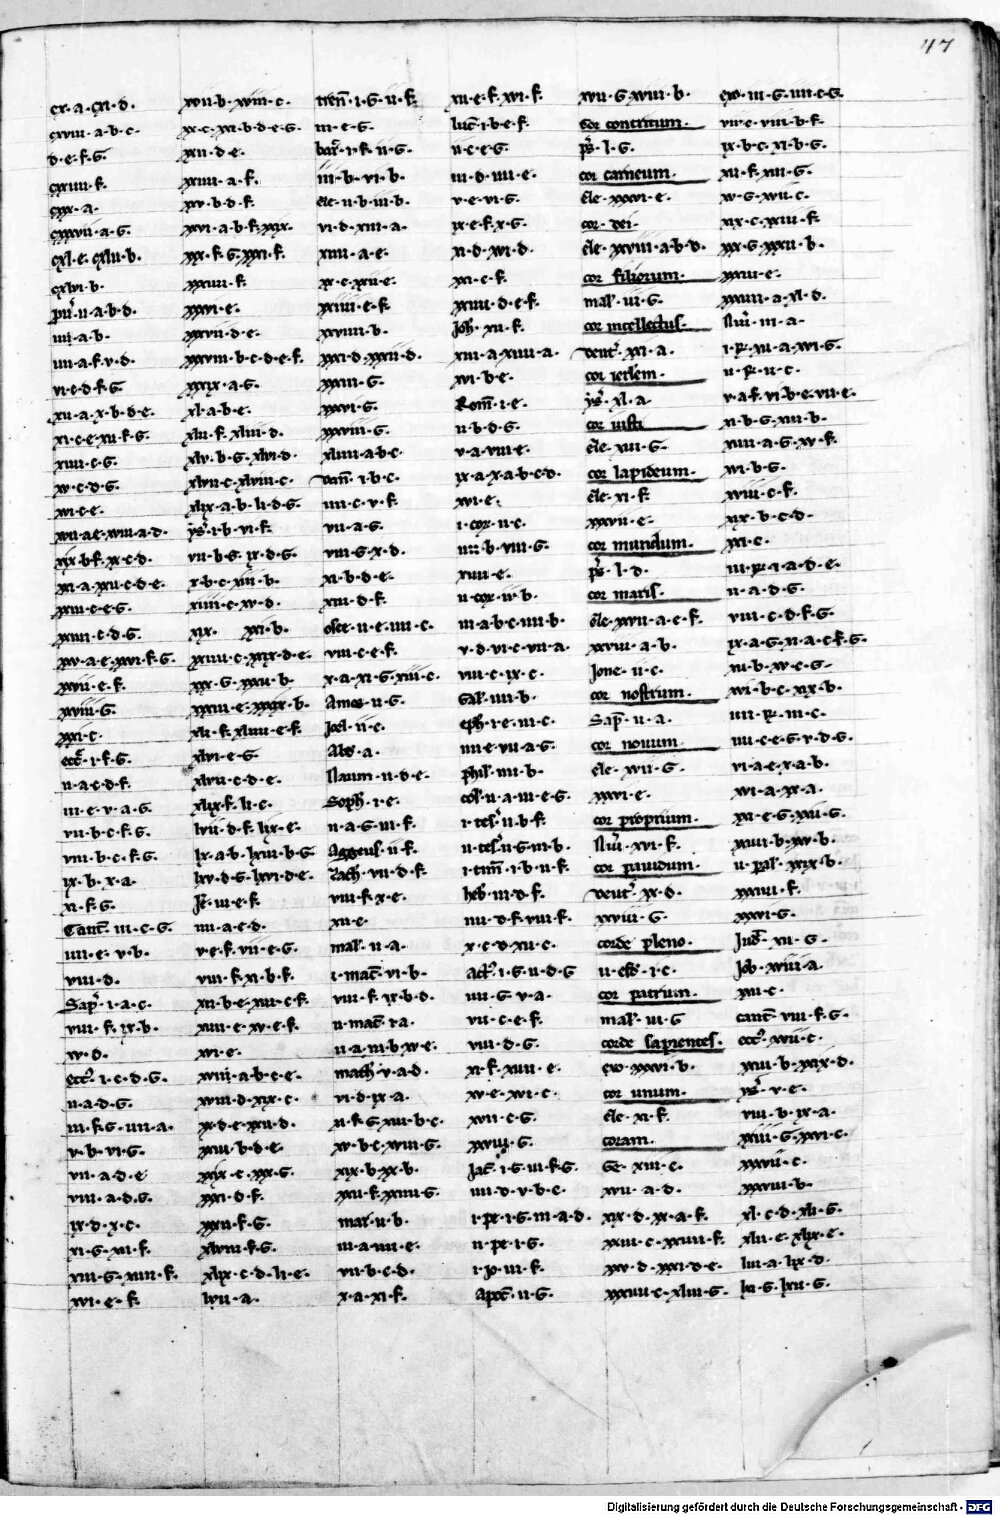 47
cx·a·cxi·d·
cxviii·a·b·c·
d·e·f·G·
cxxiiii·f·
cxxx·a·
cxxxvii·a·G·
cxl·e·cxlii·b·
cxlvi·b·
pu͛·ii·a·b·d·
iiii·a·b·
iiii·a·f·v·d·
vi·c·d·f·G·
xii·a·x·b·d·e·
xi·c·e·xii·f·G·
xiiii·c·G·
xv·c·d·G·
xvi·c·e·
xvii·a·e·xviii·a·d·
xix·b·f·xx·c·d·
xxi·a·xxii·c·d·e·
xxiii·c·e·G·
xxiiii·c·d·G·
xxv·a·e·xxvi·f·G·
xxvii·e·f·
xxviii·G·
xxxi·c·
ecc͛·i·f·G·
ii·a·c·d·f·
iii·e·v·a·G·
vii·b·c·f·G·
viii·b·c·f·G·
ix·b·x·a·
xi·f·G·
Cant͛·iii·c·G·
iiii·e·v·b·
viii·d·
Sap͛·i·a·c·
viii·f·ix·b·
xv·d·
ecc͛·i·c·d·G·
ii·a·d·G·
iii·f·G·iiii·a·
v·b·vi·G·
vii·a·d·e
viii·a·d·G·
ix·d·x·c·
xi·G·xii·f·
xiii·G·xiiii·f·
xvi·e·f·
xvii·b·xviii·c·
xx·c·xxi·b·d·e·G·
xxii·d·e·
xxiiii·a·f·
xxv·b·d·f·
xxvi·a·b·f·xxix·
xxx·f·G·xxxi·f·
xxxiiii·f·
xxxvi·e·
xxxvii·d·e·
xxxviii·b·c·d·e·f·
xxxix·a·G·
xl·a·b·e·
xlii·f·xliii·d·
xlv·b·G·xlvi·d·
xlvii·c·xlviii·c·
xlix·a·b·li·d·G·
ys͛·i·b·vi·f·
vii·b·G·ix·d·G·
x·b·c·xiii·b·
xiiii·c·xv·d·
xix· xxi·b·
xxiiii·c·xxix·d·e·
xxx·G·xxxii·b·
xxxiii·e·xxxix·b·
xli·f·xliiii·e·f·
xlvi·e·G·
xlvii·c·d·e·
xlix·f·li·c·
lvii·d·f·lix·e·
lx·a·b·lxiii·b·G
lxv·d·G·lxvi·d·e·
Je͛·iii·e·f·
iiii·a·c·d·
v·e·f·vii·e·G·
viii·f·xi·b·f·
xii·b·e·xiii·c·f·
xiiii·e·xv·e·f·
xvi·e·
xvii·a·b·c·e·
xviii·d·xix·c·
xx·d·e·xxii·d·
xxiii·b·d·e·
xxix·c·xxx·G·
xxxi·d·f·
xxxii·f·G·
xlviii·f·G·
xlix·c·d·li·e·
lvii·a·
tren͛·i·G·ii·f·
iii·e·G·
bar͛·i·f·ii·G·
iii·b·vi·b·
eze·ii·b·iii·b·
vi·d·xiii·a·
xiiii·a·e·
xx·c·xxii·e·
xxiiii·e·f·
xxviii·b·
xxxi·d·xxxii·d·
xxxiii·G·
xxxvi·G·
xxxviii·G·
xliiii·a·b·c·
dan͛·i·b·c·
iiii·c·v·f·
vii·a·G·
viii·G·x·d·
xi·b·d·e·
xiii·d·f·
osee·ii·e·iiii·c·
viii·c·e·f·
x·a·xi·G·xiii·c·
Amos·ii·G·
Joel·ii·e·
Abd·a·
Naum·ii·d·e·
Soph͛·i·e·
ii·a·G·iii·f·
Aggeus·ii·f·
Zach͛·vii·d·f·
viii·f·x·e·
xii·e·
mal͛·ii·a·
i·mac͛·vi·b·
viii·f·ix·b·d·
ii·mac͛·i·a·
ii·a·iii·b·xv·e·
math͛·v·a·d·
vi·d·ix·a·
xi·f·G·xiii·b·c·
xv·b·c·xviii·G·
xix·b·xx·b·
xxii·f·xxiiii·G·
mar͛·ii·b·
iii·a·iiii·e·
vii·b·c·d·
x·a·xi·f·
xii·e·f·xvi·f·
luc͛·i·b·e·f·
ii·c·e·G·
iii·d·iiii·e·
v·e·vi·G·
ix·e·f·x·G·
xi·d·xvi·d·
xxi·c·f·
xxiiii·d·e·f·
Joh͛·xii·f·
xiii·a·xiiii·a·
xvi·b·e·
Rom͛·i·e·
ii·b·d·G·
v·a·viii·e·
ix·a·x·a·b·c·d·
xvi·e·
i·cor·ii·c·
iiii·b·viii·G·
xiiii·e·
ii·cor·ii·b·
iii·a·b·c·iiii·b·
v·d·vi·c·vii·a·
viii·c·ix·c·
Gal͛·iiii·b·
eph͛·i·e·iii·c·
iiii·e·vii·a·G·
phil͛·iiii·b·
col͛·ii·a·iii·e·G·
i·tes͛·ii·b·f·
ii·tes͛·ii·G·iii·b·
i·tim͛·i·b·ii·f·
heb͛·iii·d·f·
iiii·d·f·viii·f·
x·c·d·xii·c·
Act͛·i·G·ii·d·G
iiii·G·v·a·
vii·c·e·f·
viii·d·G·
xi·f·xiiii·e·
xv·e·xvi·c·
xvii·c·G·
xxviii·G·
Jac͛·i·G·iii·f·G·
iiii·d·v·b·c·
i·pe·i·G·iii·a·d·
ii·pe·i·G·
i·Jo·iii·f·
Apoc͛·ii·G·
xvii·G·xviii·b·
cor contritum·
ps͛·l·G·
cor carneum·
eze·xxxvi·e·
cor· dei·
eze·xxviii·a·b·d·
cor filiorum·
mal͛·iii·G·
cor intellectus·
deut͛·xxi·a·
cor ierlem·
ys͛·xl·a·
cor iusti
eze·xiii·G·
cor lapideum·
eze·xi·f·
xxxvi·e·
cor mundum·
ps͛·l·d·
cor maris·
eze·xxvii·a·e·f·
xxviii·a·b·
Jone·ii·c·
cor nostrum·
Sap͛·ii·a·
cor nouum·
eze·xvii·G·
xxxvi·e·
cor proprium·
Nu͛·xvi·f·
cor pauidum·
deut͛·xx·d·
xxviii·G·
corde pleno·
ii·esd͛·i·c·
cor patrum·
mal͛·iii·G
corde sapientes·
exo·xxxvi·b·
cor unum·
eze·xi·f·
coram·
Ge·xiii·c·
xvii·a·d·
xix·d·xx·a·f·
xxiii·c·xxiiii·f·
xxv·d·xxxi·d·e·
xxxiiii·c·xliii·G·
exo·iii·G·iiii·c·G·
vii·c·viii·b·f·
ix·b·c·xi·b·G·
xii·f·xiii·G·
xv·G·xvii·c·
xix·c·xxiii·f·
xxx·G·xxxii·b·
xxxiii·e·
xxxiiii·a·xl·d·
Nu͛·iii·a·
i·R·xii·a·xvi·G·
ii·R·ii·c·
v·a·f·vi·b·e·vii·e·
xi·b·G·xii·b·
xiii·a·G·xv·f·
xvi·b·G·
xviii·c·f·
xix·b·c·d·
xxi·c·
iii·R·i·a·d·e·
ii·a·d·G·
viii·c·d·f·G·
ix·a·G·xi·a·c·f·G·
xii·b·xv·c·G·
xvi·b·c·xix·b·
iiii·R·iii·c·
iiii·c·e·G·v·d·G·
vi·a·e·x·a·b·
xvi·a·xx·a·
xxi·e·G·xxii·G·
xxiii·b·xxv·b·
ii·pal͛·xxix·b·
xxxiiii·f·
xxxvi·G·
Jud͛·xii·G·
Job·xiii·a·
xxi·c·
cant͛·viii·f·G·
ecc͛·xvii·c·
xxiii·b·xxix·d·
ys͛·v·e·
viii·b·ix·a·
xxiii·G·xxvi·c·
xxxvii·c·
xxxviii·b·
xl·c·d·xli·G·
xlii·e·xlix·e·
liii·a·lix·d·
lxi·G·lxii·G·
Digitalisierung gefördert durch die Deutsche Forschungsgemeinschaft - DFG